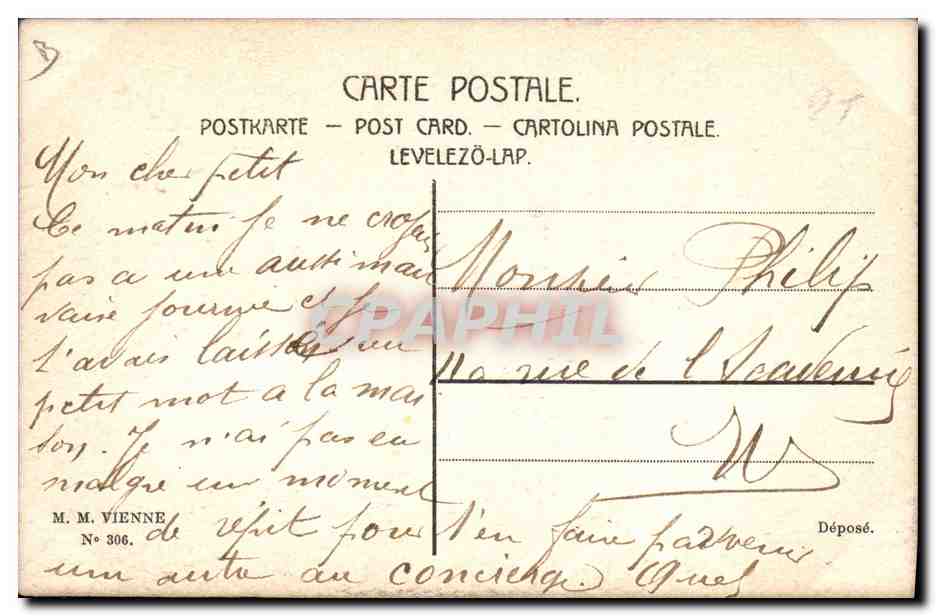 CARTE POSTALE.
POSTKARTE – POST CARD. – CARTOLINA POSTALE.
LEVELEZÖ-LAP.
Mon cher petit
Ce matin je ne croyais
pas a une aussi mau
vaise journée et je
t'avais laissé un
petit mot a la mai
son. Je n'ai pas eu
malgre un moment
de répit pour t'en faire parvenir
un autre au concierge. Quel
Monsieur Philip
11 a rue de l'Academie
M. M. VIENNE
Nº 306.
Déposé.
CPAPHIL